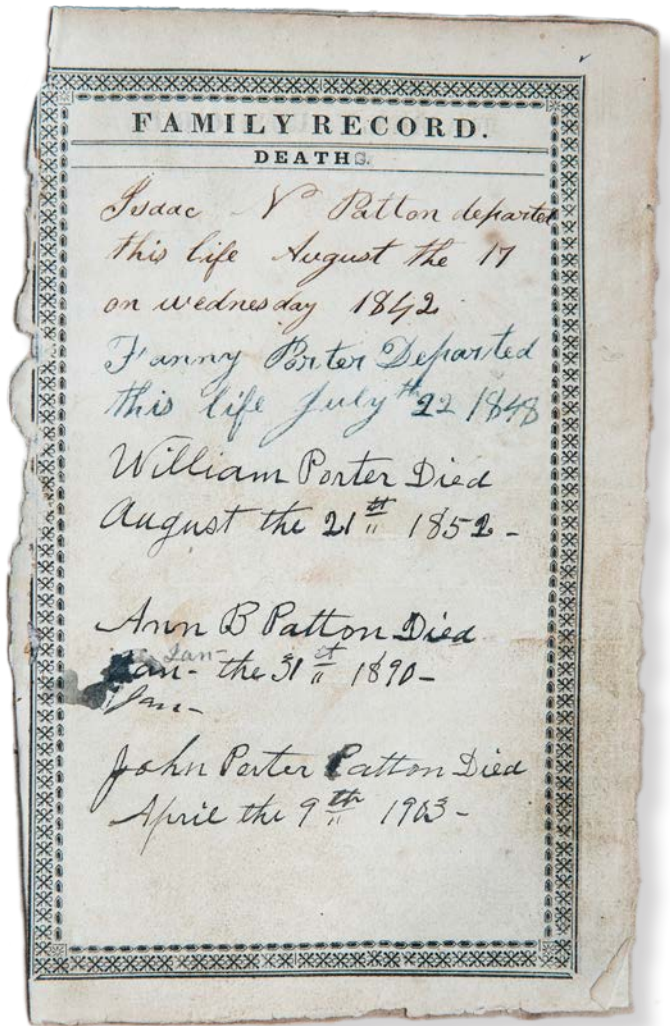 FAMILY RECORD.
DEATHS.
Isaac N Patton departed
this life August the 17
on wednesday 1842
Fanny Porter Departed
this life July th 22 1848
William Porter Died
August the 21 st 1852 -
Ann B Patton Died
Jan-
Jan- the 31 st 1890 -
Jan-
John Porter Patton Died
April the 9 th 1903 -